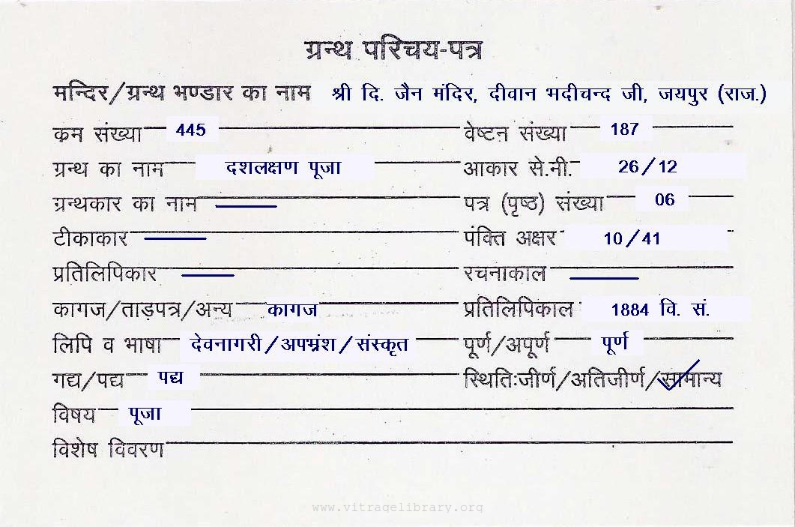 ग्रन्थ परिचय-पत्र
मन्दिर/ग्रन्थ भण्डार का नाम श्री दि. जैन मंदिर, दीवान भदीचन्द जी, जयपुर (राज.)
कम संख्या 445 वेष्टन संख्या 187
ग्रन्थ का नाम दशलक्षण पूजा आकार से.मी. 26/12
ग्रन्थकार का नाम — पत्र (पृष्ठ) संख्या 06
टीकाकार — पंक्ति अक्षर 10/41
प्रतिलिपिकार — रचनाकाल —
कागज/ताड़पत्र/अन्य कागज प्रतिलिपिकाल 1884 वि. सं.
लिपि व भाषा देवनागरी/अपभ्रंश/संस्कृत पूर्ण/अपूर्ण पूर्ण
गद्य/पद्य पद्य स्थितिःजीर्ण/अतिजीर्ण/सामान्य
विषय पूजा
विशेष विवरण
www.vitragelibrary.org